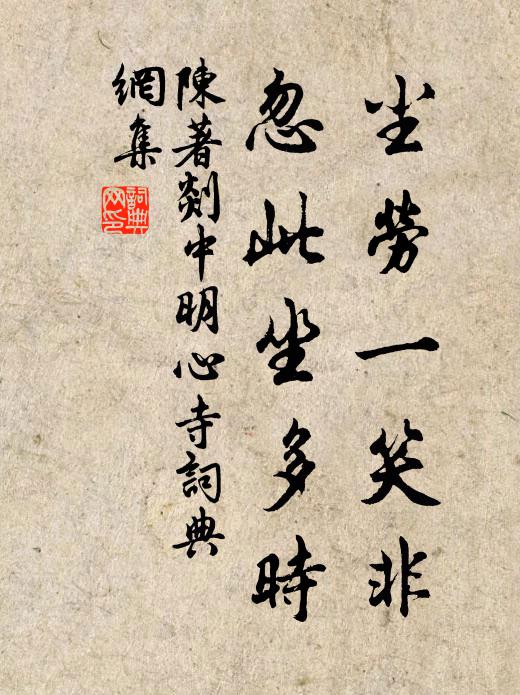 尘勞一笑非
忽此坐多時
陳著剡中明心寺詞典
網集
詞典網印